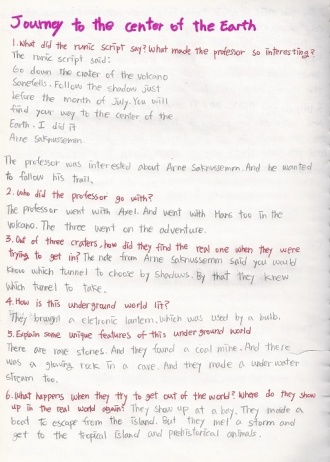 Journey to the center of the Earth
1. What did the runic script say? What made the professor so interesting?
The runic script said:
Go down the crater of the volcano
Sanefells. Follow the shadow just
before the month of July. You will
find your way to the center of the
Earth. I did it
Arne Saknussemm
The professor was interested about Arne Saknussemm. And he wanted
to follow his trail.
2. Who did the professor go with?
The professor went with Axel. And went with Hans too in the
volcano. The three went on the adventure.
3. Out of three craters, how did they find the real one when they were
trying to get in? The note from Arne Saknussemm said you would
know which tunnel to choose by shadows. By that they knew
which tunnel to take.
4. How is this underground world lit?
They brought a eletronic lantern. which was used by a bulb.
5. Explain some unique features of this underground world
There are rare stones. And they found a coal mine. And there
was a glowing rock in a cave. And they made a underwater
stream too.
6. What happens when they try to get out of the world? Where do they show
up in the real world again? They show up at a bay. They made a
boat to escape from the island. But they met a storm and
get to the tropical island and prehistorical animals.